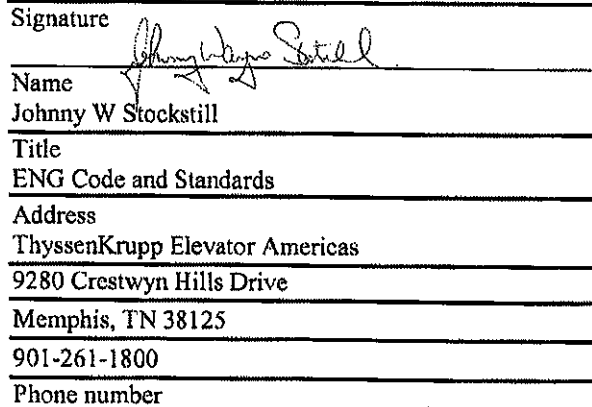 Signature
Johnny Wayne Stockstill
Name
Johnny W Stockstill
Title
ENG Code and Standards
Address
ThyssenKrupp Elevator Americas
9280 Crestwyn Hills Drive
Memphis, TN 38125
901-261-1800
Phone number